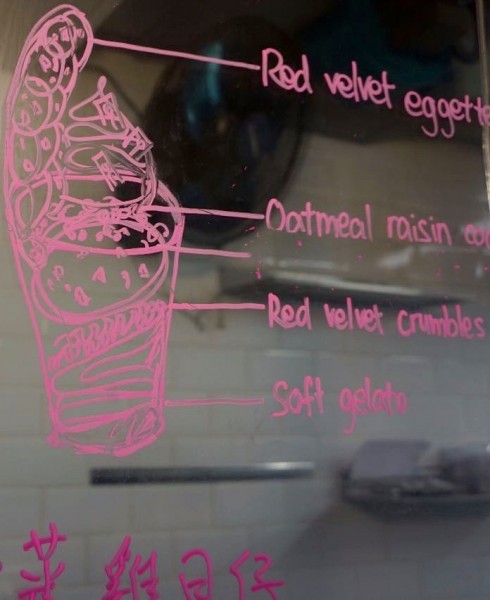 Red velvet eggette
Oatmeal raisin
Red velvet crumbles
Soft gelato
雞旦仔